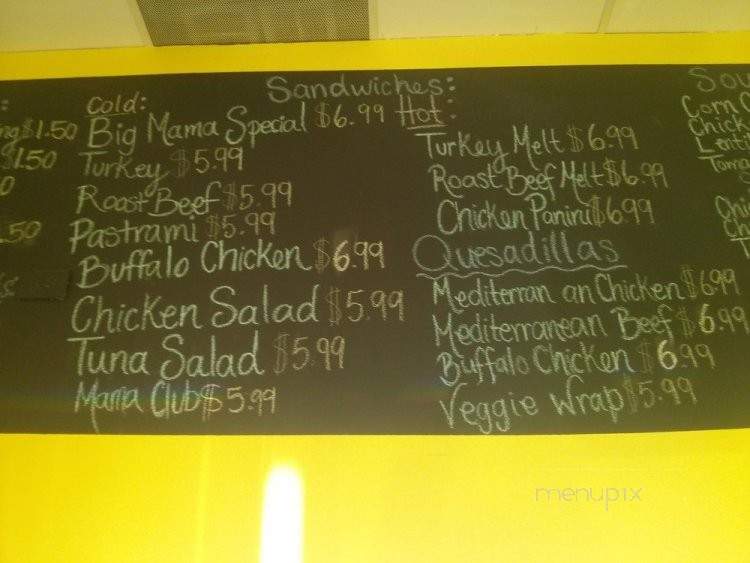 Sandwiches:
Cold:
Big Mama Special $6.99
Turkey $5.99
Roast Beef $5.99
Pastrami $5.99
Buffalo Chicken $6.99
Chicken Salad $5.99
Tuna Salad $5.99
Mama Club $5.99
Hot:
Turkey Melt $6.99
Roast Beef Melt $6.99
Chicken Panini $6.99
Quesadillas
Mediterran an Chicken $6.99
Mediterranean Beef $6.99
Buffalo Chicken $6.99
Veggie Wrap $5.99
$1.50
$1.50
.50
Sou
Corn C
Chick
Lenti
Toma
Chi
Ch
menupix